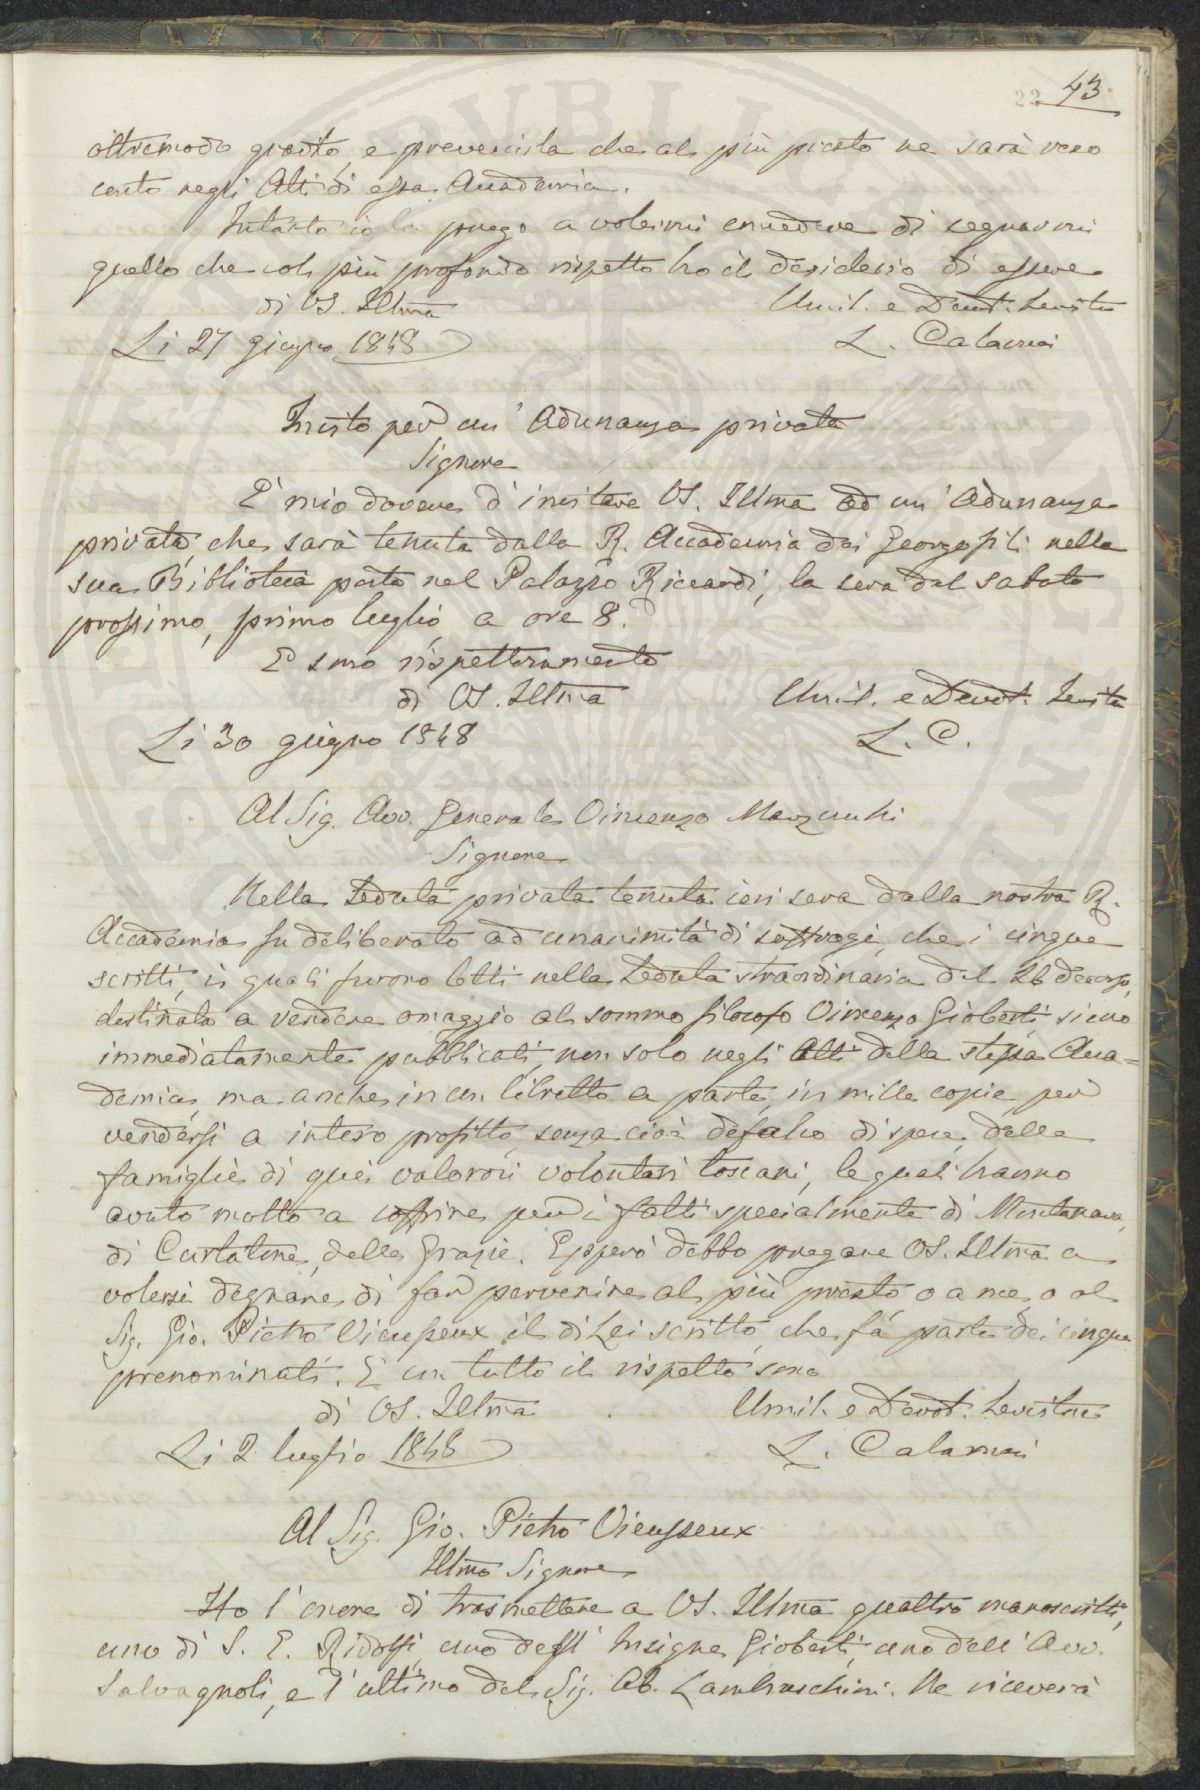 43
oltremodo grato, e prevenirla che al più presto ne sarà reso
conto negli Atti di essa Accademia.
Intanto io la prego a volermi concedere di segnarmi
quello che col più profondo rispetto ho il desiderio di essere
di VS. Illma
Umil. e Devot. Servitore
Li 27 giugno 1848
L. Calamai
Invito per un' Adunanza privata
Signore
E' mio dovere d' invitare VS. Illma ad un' Adunanza
privata, che sarà tenuta dalla R. Accademia dei Georgofili nella
sua Biblioteca posta nel Palazzo Riccardi, la sera del sabato
prossimo, primo luglio, a ore 8.
E sono rispettosamente
di VS. Illma
Umil. e Devot. Servitre
Li 30 giugno 1848
L. C.
Al Sig. Avv. Generale Vincenzo Marzucchi
Signore
Nella Seduta privata tenuta ieri sera dalla nostra R.
Accademia fu deliberato ad unanimità di suffragi, che i cinque
scritti, i quali furono letti nella Seduta straordinaria del 26 decorso,
destinata a rendere omaggio al sommo filosofo Vincenzo Gioberti sieno
immediatamente pubblicati, non solo negli Atti della stessa Acca=
demia, ma anche in un libretto a parte, in mille copie per
vendersi a intero profitto, senza cioè defalco di spese, delle
famiglie di quei valorosi volontari toscani, le quali hanno
avuto molto a soffrire per i fatti specialmente di Montanara,
di Curtatone, delle Grazie. Epperò debbo pregare VS. Illma a
volersi degnare di far pervenire al più presto o a me, o al
Sig. Gio. Pietro Vieusseux il di Lei scritto, che fà parte dei cinque
prenominati. E con tutto il rispetto sono
di VS. Illma
Umil. e Devot. Servitore
Li 2 luglio 1848
L. Calamai
Al Sig. Gio. Pietro Vieusseux
Illmo Signore
Ho l' onore di trasmettere a VS. Illma quattro manoscritti,
uno di S. E. Ridolfi, uno dell' Insigne Gioberti, uno dell' Avv.
Salvagnoli, e l' ultimo del Sig. Ab. Lambruschini. Ne riceverà